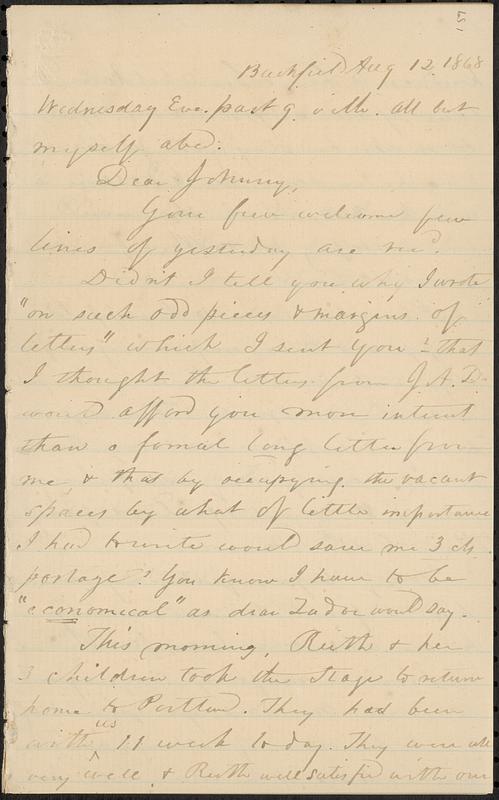 157
Buckfield Aug 12. 1868
Wednesday Eve. past 9. o'clk. all but
myself abed.
Dear Johnny,
Your few welcome few
lines of yesterday are recd.
Didn't I tell you why I wrote
"on such odd pieces & margins of
letters" which I sent you? - that
I thought the letters from J. A. D.
would afford you more interest
than a formal long letter from
me, & that by occupying the vacant
spaces by what of little importance
I had to write would save me 3 cts.
postage? You know I have to be
"economical" as dear Zadoc would say.
This morning, Ruth & her
3 children took the Stage to return
home to Portland. They had been
with us 11 week to day. They were all
very well & Ruth well satisfied with our